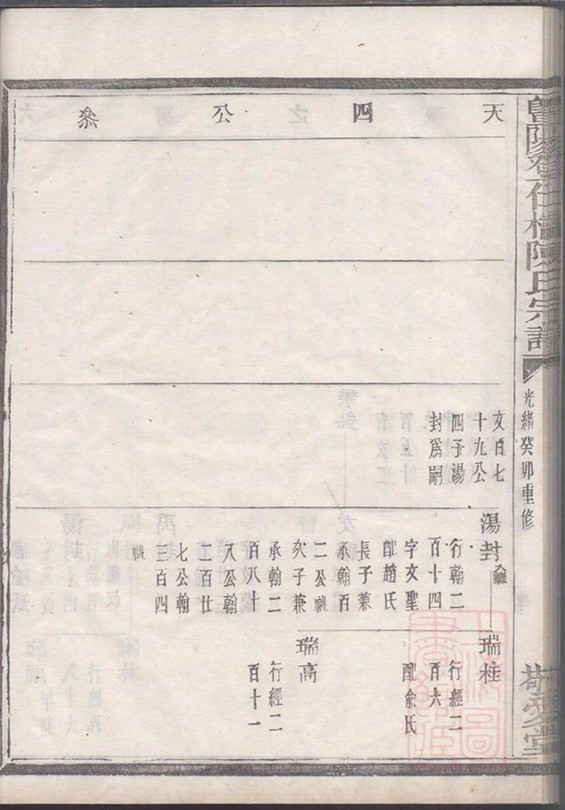 暨陽孝石橋陳氏宗譜
光緒癸卯重修
敬愛堂
天四公叅
文百七
十九公
四子湯
封爲嗣
湯封
入繼
行翰二
百十四
字文聖
配趙氏
長子兼
承翰百
二公職
次子兼
承翰二
百八十
八公翰
二百廿
七公翰
三百四
職
瑞桂
行經二
百六
配俞氏
瑞高
行經二
百十一